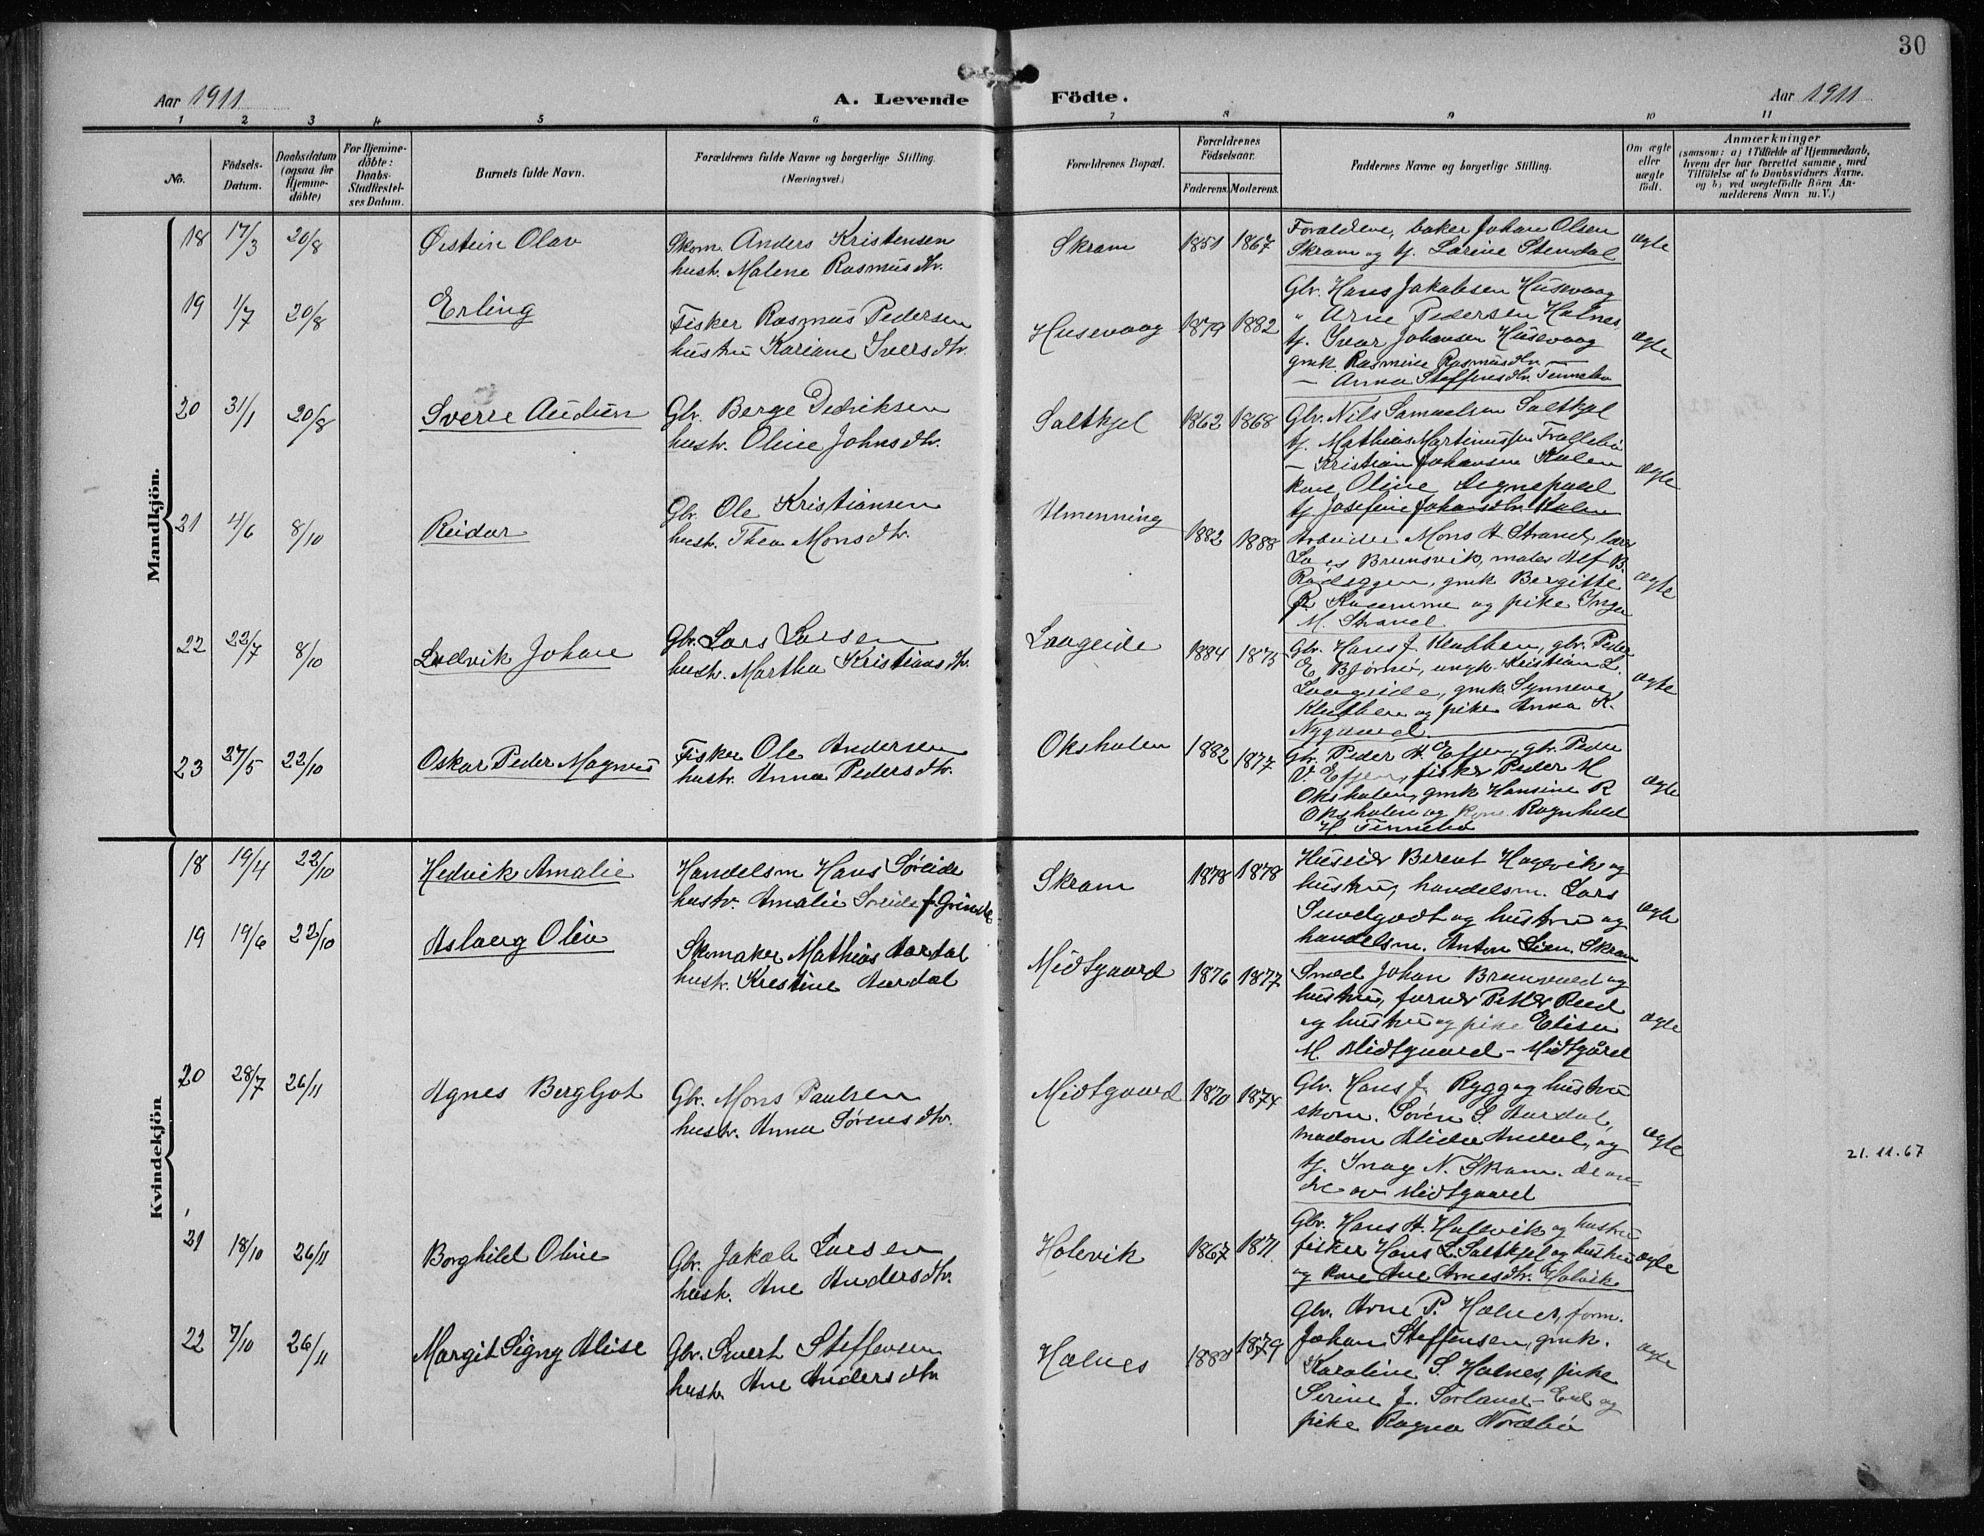 30
Aar 1911
A. Levende Födte.
Aar 1911
1 2 3 4 5 6 7 8 9 10 11
No.
Födsels-Datum.
Daabsdatum (ogsaa for Hjemme-döbte)
For Hjemme-döbte: Daabs-Stadfæstel-ses Datum.
Barnets fulde Navn.
Forældrenes fulde Navne og borgerlige Stilling. (Næringsvei.)
Forældrenes Bopæl.
Forældrenes Födselsaar.
Faderens. Moderens.
Faddernes Navne og borgerlige Stilling.
Om ægte eller uægte født.
Anmærkninger
(saasom: a) i Tilfælde af Hjemmedaab, hvem der har forrettet samme, med Tilföielse af to Daabsvidners Navne. og b) ved uægtefödte Börn An-melderens Navn m. V.)
Mandkjön.
18 17/3 20/8 Øistein Olav
Skom. Anders Kristensen
hustr. Malene Rasmusdtr.
Skram 1851 1867
Forældrene, baker Johan Olsen
Skram og tj. Larine Stendal
ægte
19 1/7 20/8 Erling
Fisker Rasmus Pedersen
hustru Kariane Iversdtr.
Husevaag 1879 1882
Gbr. Hans Jakobsen Husevaag
" Arne Pedersen Halnes
tj. Ivar Johansen Husevaag
gmk. Rasmine Rasmusdtr —
— Anna Steffensdtr. Tennebø
ægte
20 31/1 20/8 Sverre Audun
Gbr. Berge Dedriksen
hustr. Oline Johnsdtr.
Saltkjel 1862 1868
Gbr. Nils Samuelsen Saltkjel
tj. Mathias Martinussen
— Kristian Johansen Kalen
kone Oline Degnepoll
tj. Josefine Johansdtr. Kalen
ægte
21 4/6 8/10 Reidar
Gbr. Ole Kristiansen
hustr. Thea Monsdtr.
Almenning 1882 1888
Arbeider Mons A Strand,
Lars Brunsvik, maler Alf B.
gmk Bergitte
og pike Inga
M. Strand
ægte
22 22/7 8/10 Ludvik Johan
Gbr. Lars Larsen
hustr. Martha Kristiansdtr.
Laageide 1884 1875
Gbr. Hans J. Klubben, gbr. Peder
E Bjørnø, ungk. Kristian L.
Laageide, gmk Synneve
Klubben og pike Anna K.
Nygaard
ægte
23 27/5 22/10 Oskar Peder Magnus
Fisker Ole Andersen
hustr. Anna Pedersdtr.
Oksholen 1882 1877
Gbr. Peder A. gbr. Peder
fisker Peder M
Oksholen, gmk Hansine R
Oksholen og Ragnhild
H. Tennebø
ægte
Kvindekjön
18 19/4 22/10 Hedvik Amalie
Handelsm Hans Søreide
hustr. Amalie Søreide f. Grinde
Skram 1878 1878
Huseier Berent Hagevik og
hustru, handelsm. Lars
og hustru og
handelsm. Anton Lien. Skram
ægte
19 19/6 22/10 Aslaug Oline
Skomaker Mathias Aardal
hustr. Kristine Aardal
Midtgaard 1876 1877
Smed Johan og
hustru, Petter
og hustru og pike Elise
M. Midtgaard — Midtgård
ægte
20 28/7 26/11 Agnes Bergljot
Gbr. Mons Paulsen
hustr. Anna Sørensdtr.
Midtgaard 1870 1874
Gbr. Hans J. Rygg og hustru
skom. Søren S. Aardal,
madam Alida Aardal, og
tj. N. Skram. de an-
dre av Midtgaard
ægte
21.11.67
21 18/10 26/11 Borghild Oline
Gbr. Jakob Larsen
hustr. Ane Andersdtr.
Holevik 1867 1871
Gbr. Hans A. Holevik og hustru
fisker Hans L. Saltkjel og hustru
og kone Ane Arnesdtr. Holevik
ægte
22 7/10 26/11 Margit Signy Alise
Gbr. Sivert Steffensen
hustr. Ane Andersdtr
Halnes 1879
Gbr. Arne P. Halnes, form.
Johan Steffensen, gmk.
Karoline S. Halnes, pike
Serine J. Sørland og
pike Ragna Nordbø
ægte